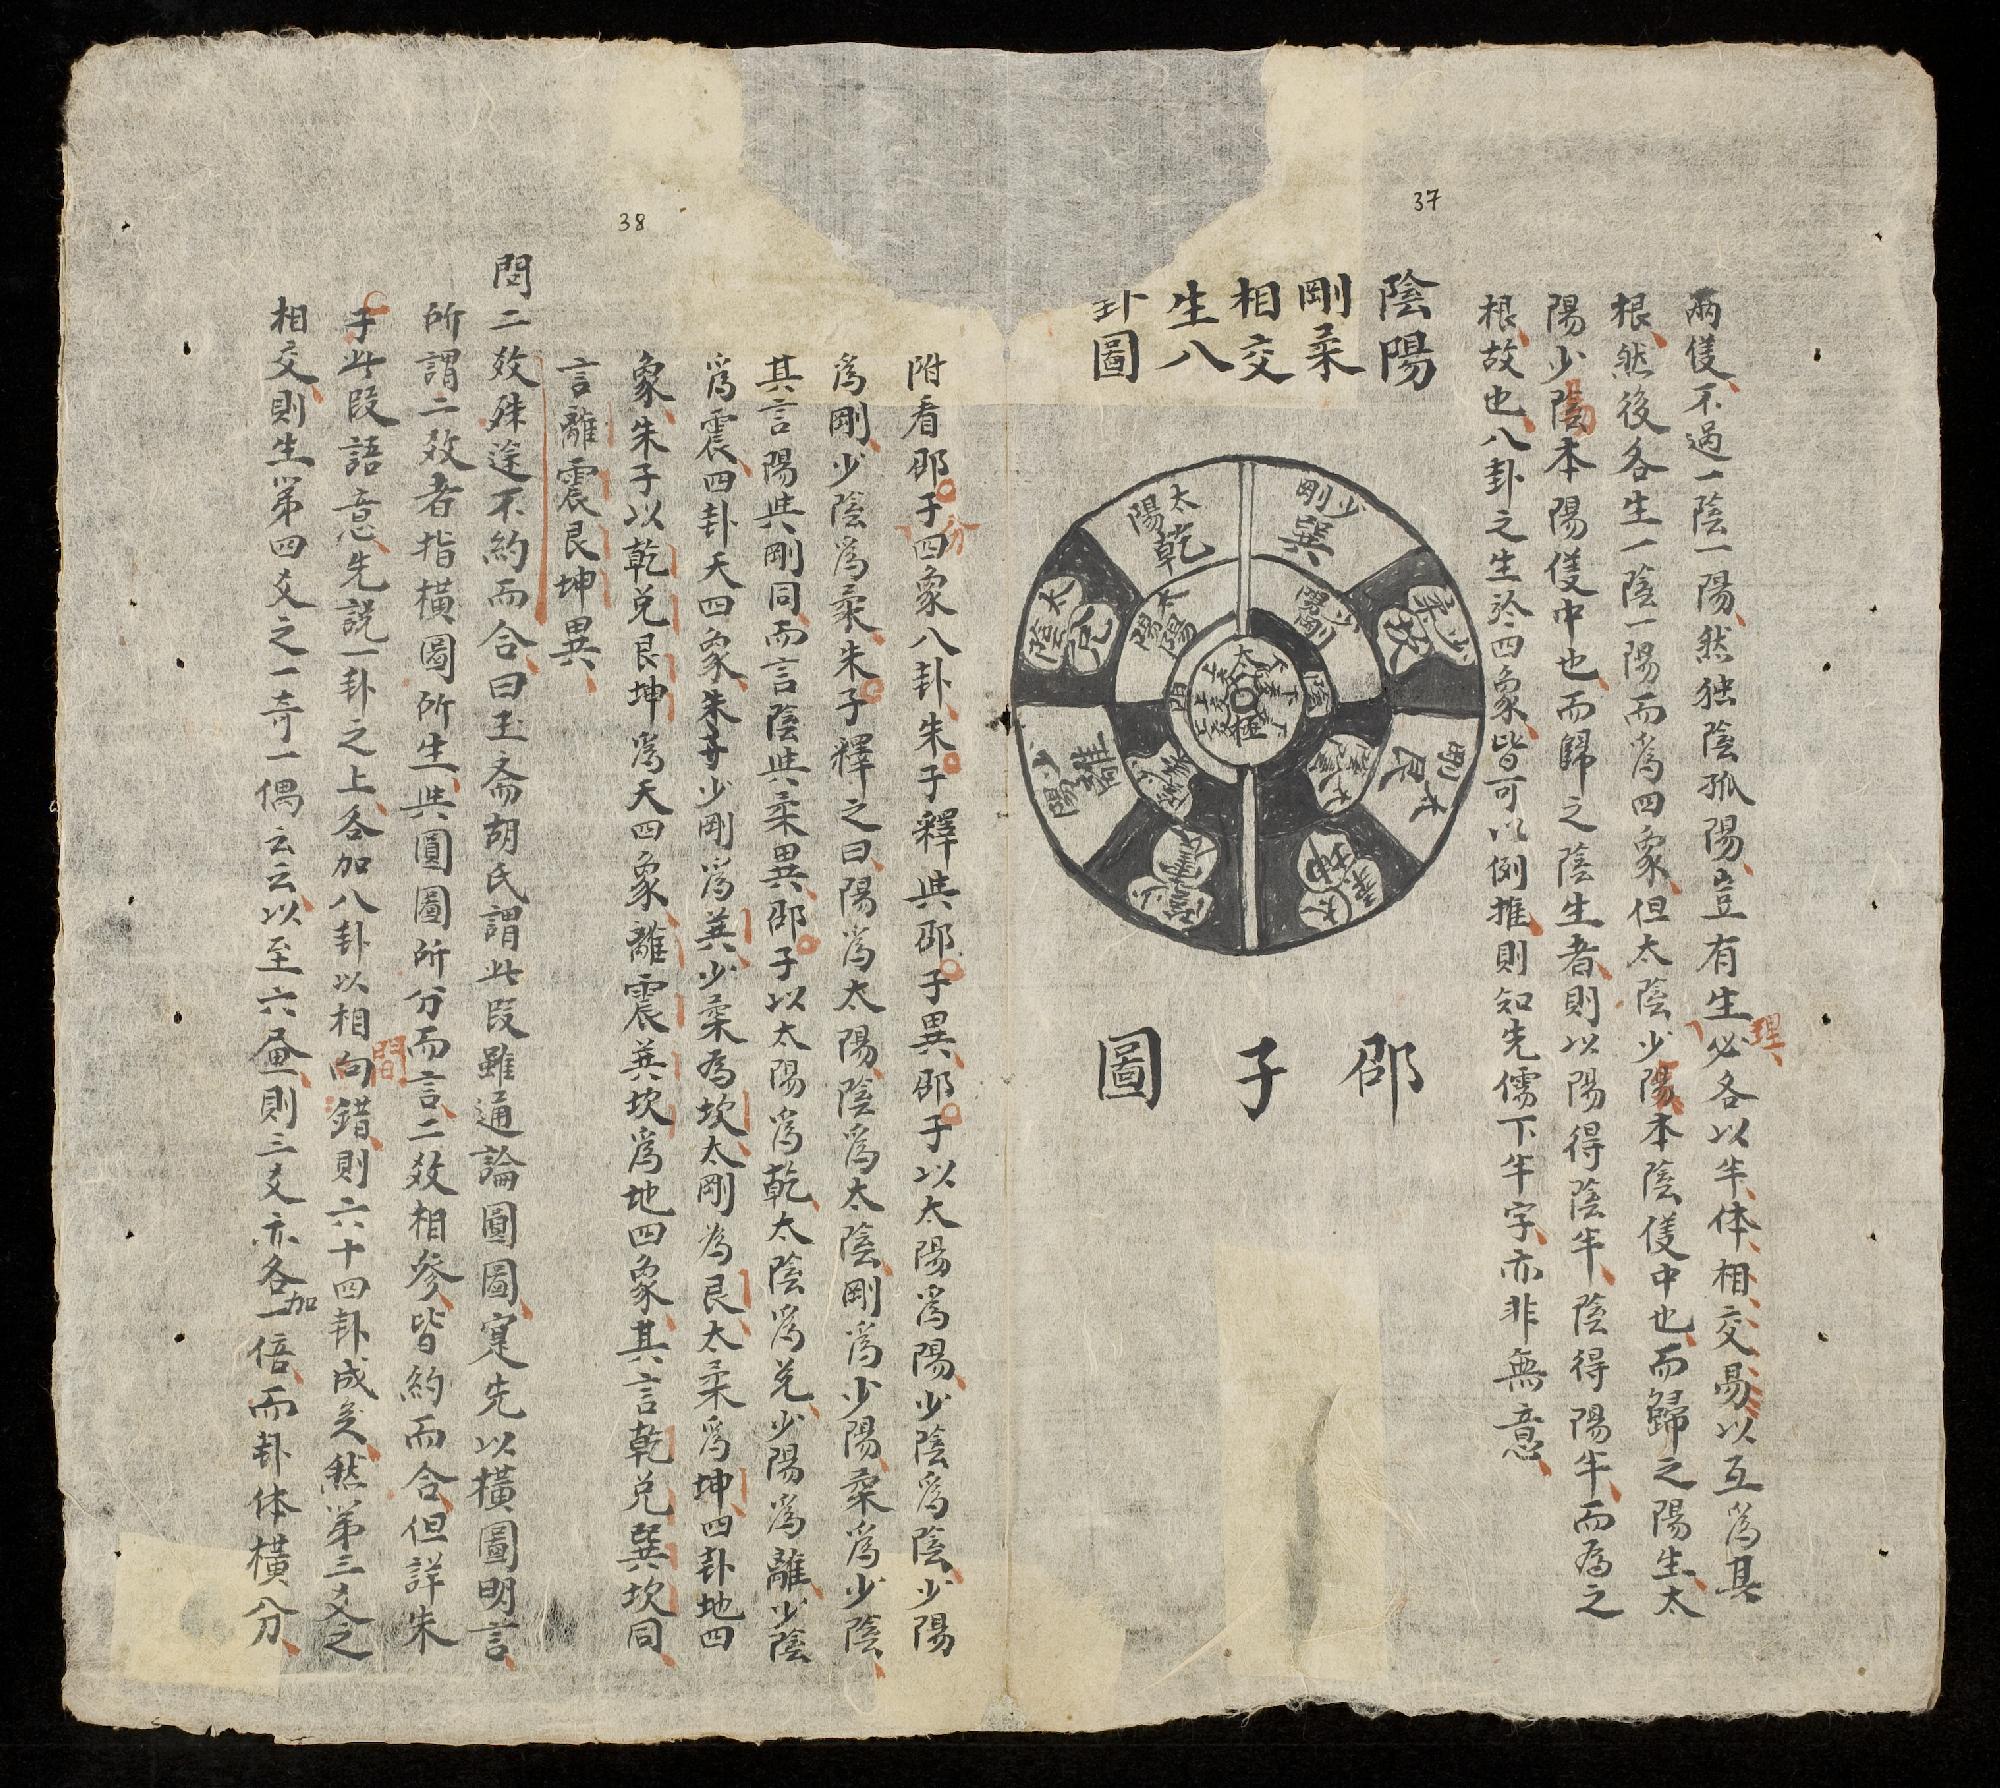 37
兩儀不過一陰一陽然独陰孤陽豈有生必各以半体相交易以互爲其
理
根然後各生一陰一陽而爲四象但太陰少陽本陰儀中也而歸之陽生太
陽少陰本陽儀中也而歸之陰生者則以陽得陰半陰得陽半而為之
根故也八卦之生於四象皆可以例推則知先儒下半字亦非無意
陰陽
剛柔
相交
生八
卦圖
少剛
巽
太陽
乾
少柔
坎
太陰
兌
太剛
艮
少陽
離
太柔
坤
少陰
震
太極
邵子圖
38
附看邵子四象八卦朱子釋與邵子異邵子以太陽爲陽少陰爲陰少陽
分
爲剛少陰爲柔朱子釋之曰陽爲太陽陰爲太陰剛爲少陽柔爲少陰
其言陽與剛同而言陰與柔異邵子以太陽爲乾太陰爲兌少陽爲離少陰
爲震四卦天四象朱子少剛爲巽少柔為坎太剛為艮太柔爲坤四卦地四
象朱子以乾兌艮坤爲天四象離震巽坎爲地四象其言乾兌巽坎同
言離震艮坤異
問二效殊途不約而合曰玉斋胡氏謂此段雖通論圓圖寔先以橫圖明言
所謂二效者指橫圖所生與圓圖所分而言二效相參皆約而合但詳朱
子此段語意先說一卦之上各加八卦以相向錯則六十四卦成矣然第三爻之
間
相交則生第四爻之一奇一偶云云以至六畫則三爻亦各加一倍而卦体橫分